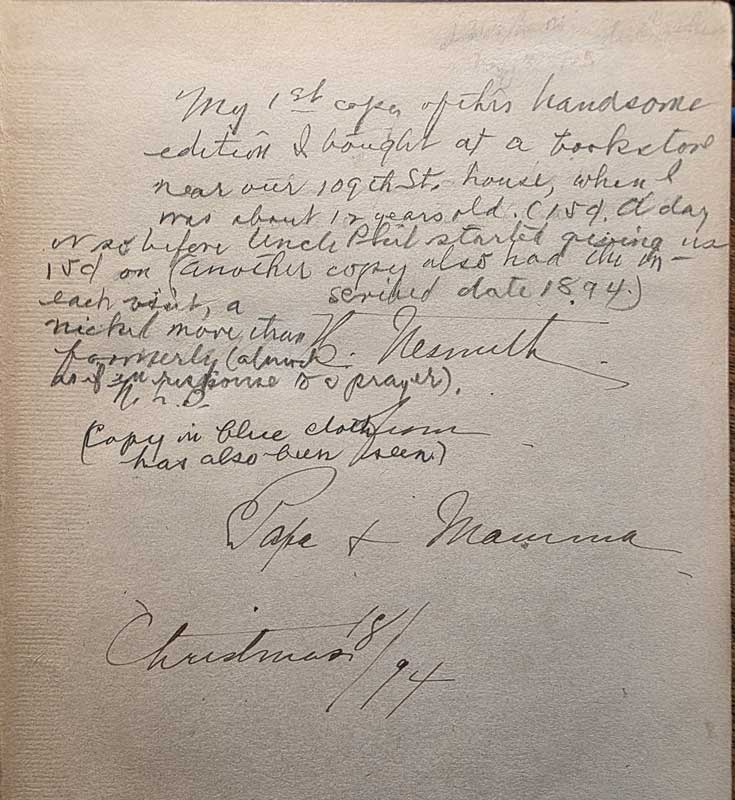 My 1st copy of this handsome
edition I bought at a bookstore
near our 109th St. house, when I
was about 12 years old. (15¢. A day
or so before Uncle Phil started giving us
15¢ on (another copy also had the in-
each visit, a scribed date 1894.)
nickel more than
K. Nesmith
formerly (almost
as if in response to a prayer).
(Copy in blue cloth
from
has also been seen.)
Papa & Mamma
Christmas 18/94